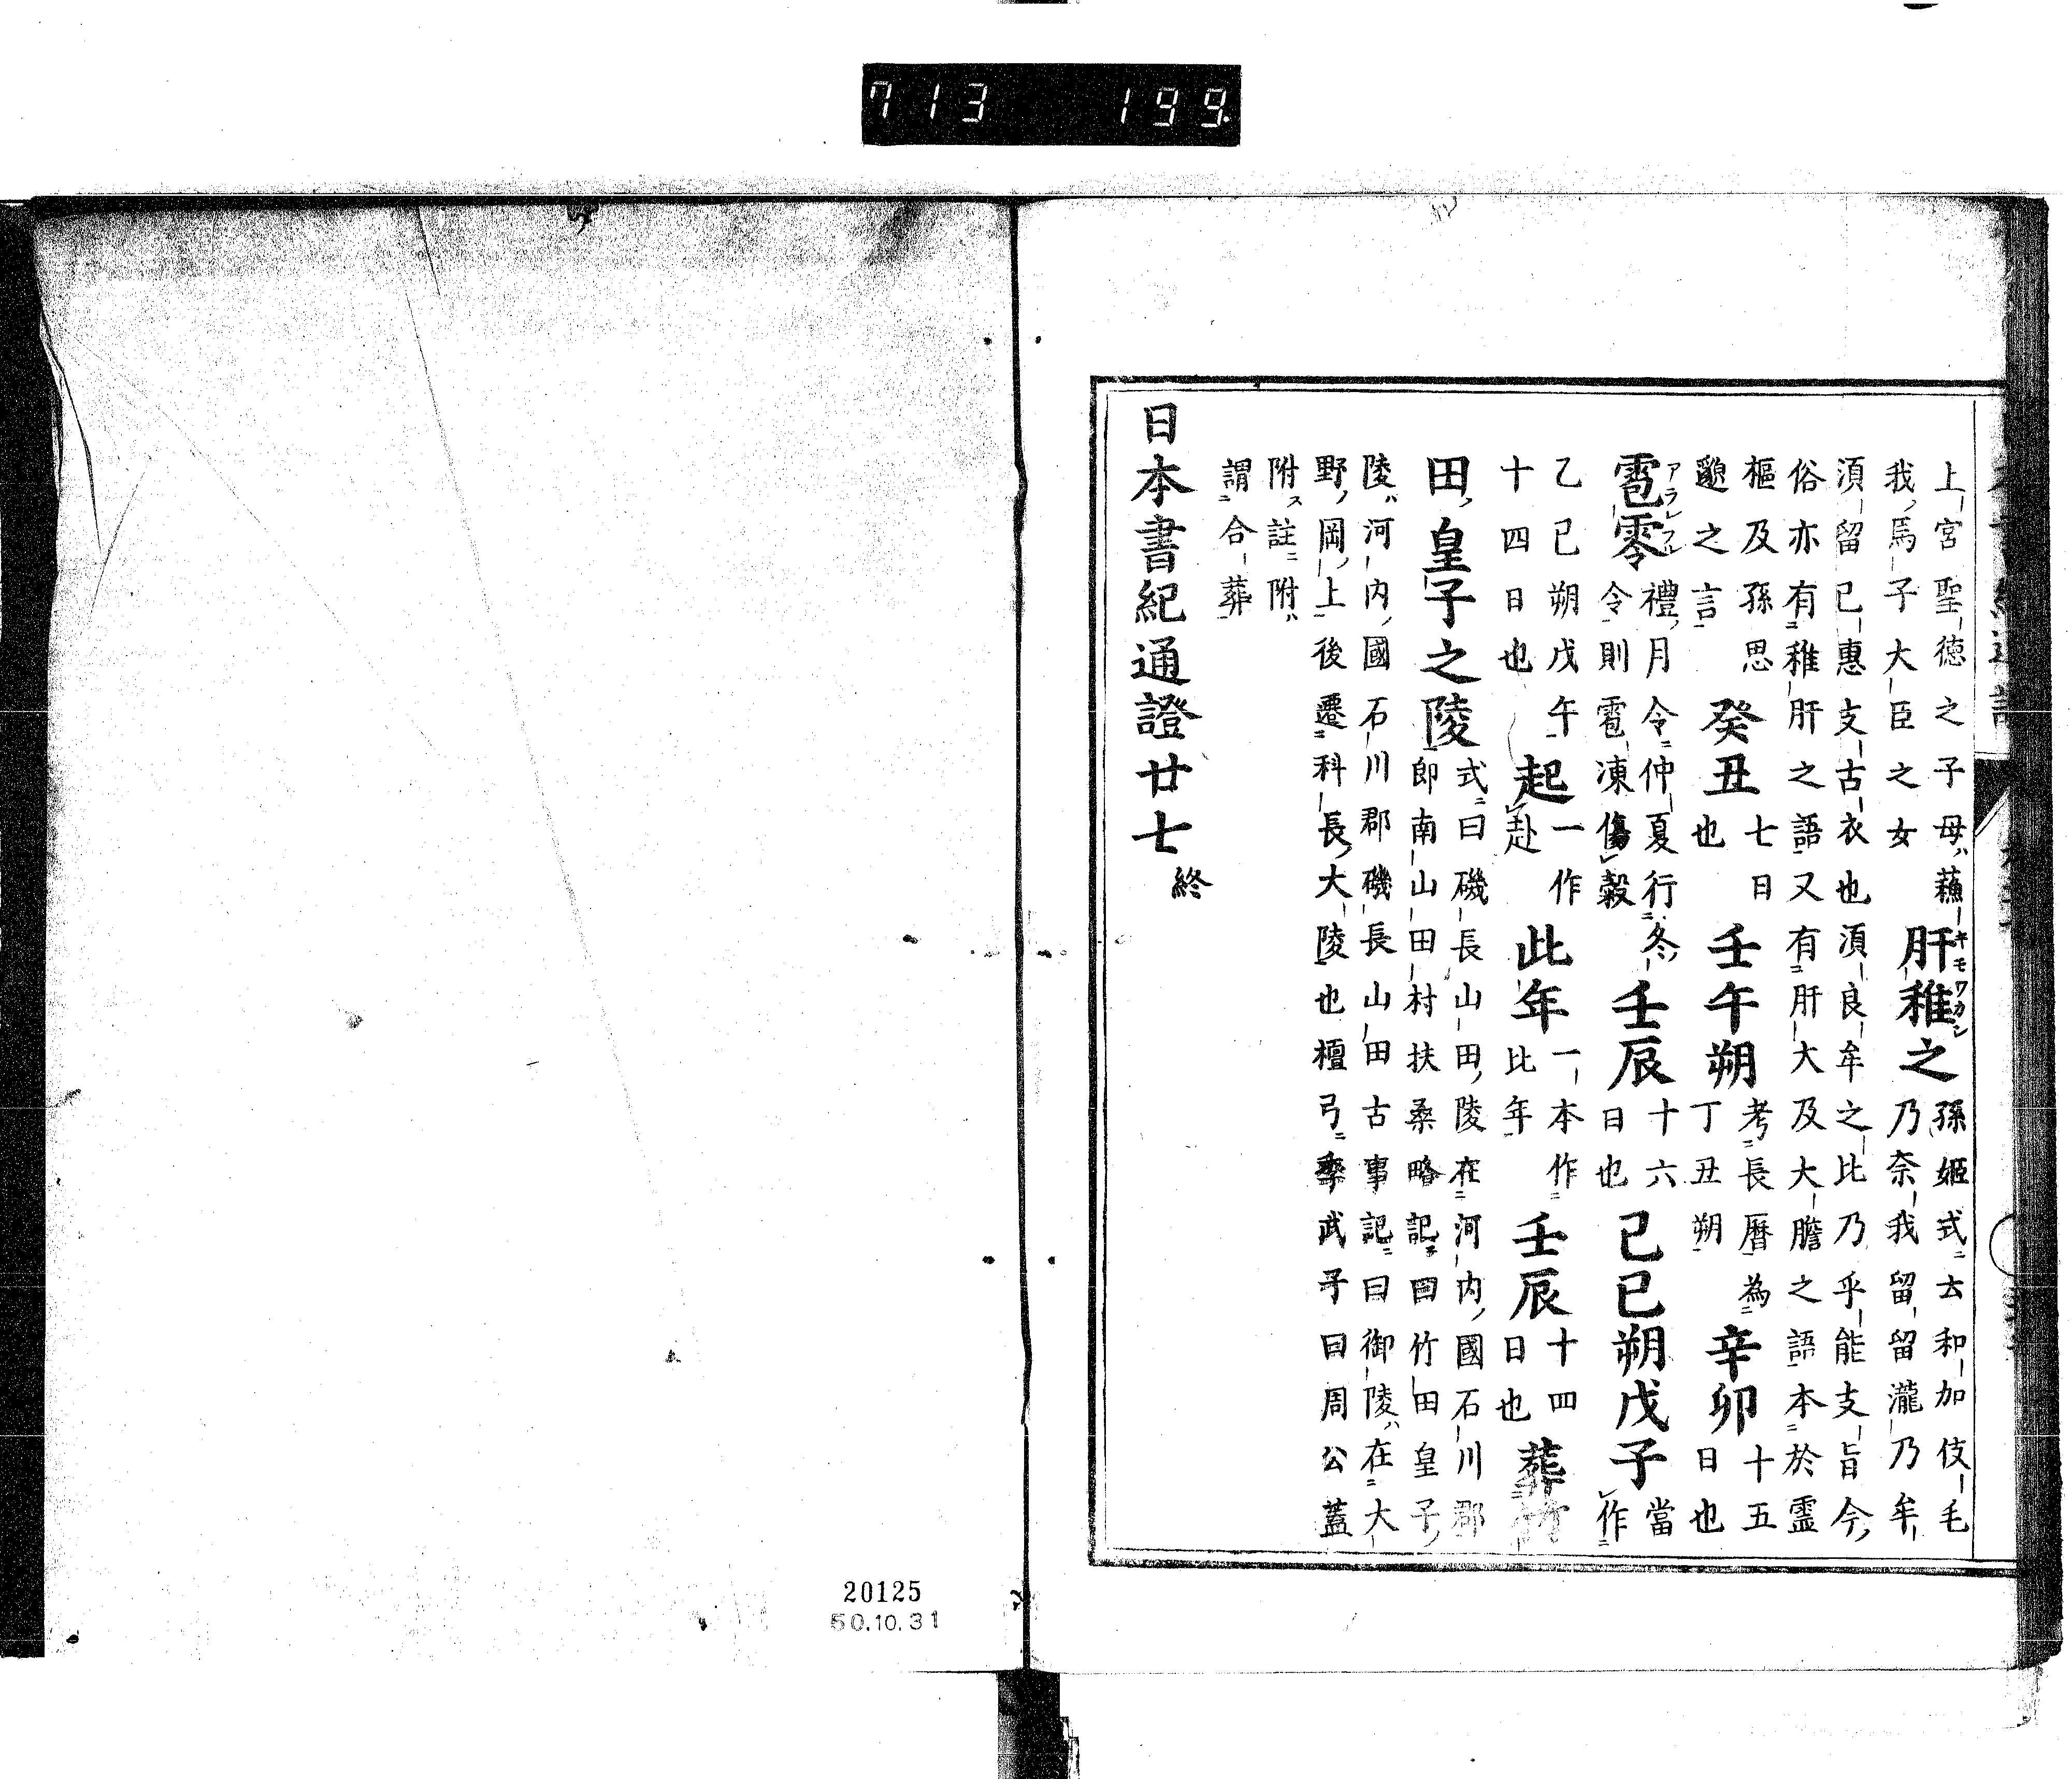 713 199
上宮聖徳之子母ハ蘓
我馬子大臣之女
肝稚之
キモワカシ
孫姬式ニ云和加伎毛
乃奈我留留瀧乃牟
須留已惠支古衣也須良牟之比乃乎能支旨今
俗亦有稚肝之語又有肝大及大膽之語本於霊
樞及孫思
邈之言
癸丑
七日
也
壬午朔
考長暦為
丁丑朔
辛卯
十五
日也
雹零
アラレフル
禮月令仲夏行冬
令則雹凍傷穀
壬辰
十六
日也
己巳朔戊子
當
作
乙巳朔戊午
十四日也
起
一作
赴
此年
一本作
比年
壬辰
十四
日也
葬竹
田皇子之陵
式曰磯長山田陵在河内國石川郡
即南山田村扶桑略記曰竹田皇子
陵ハ河内國石川郡磯長山田古事記曰御陵ハ在大
野岡上後遷科長大陵也檀弓季武子曰周公蓋
附ス註附ハ
謂合葬
日本書紀通證廿七 終
20125
50.10.31